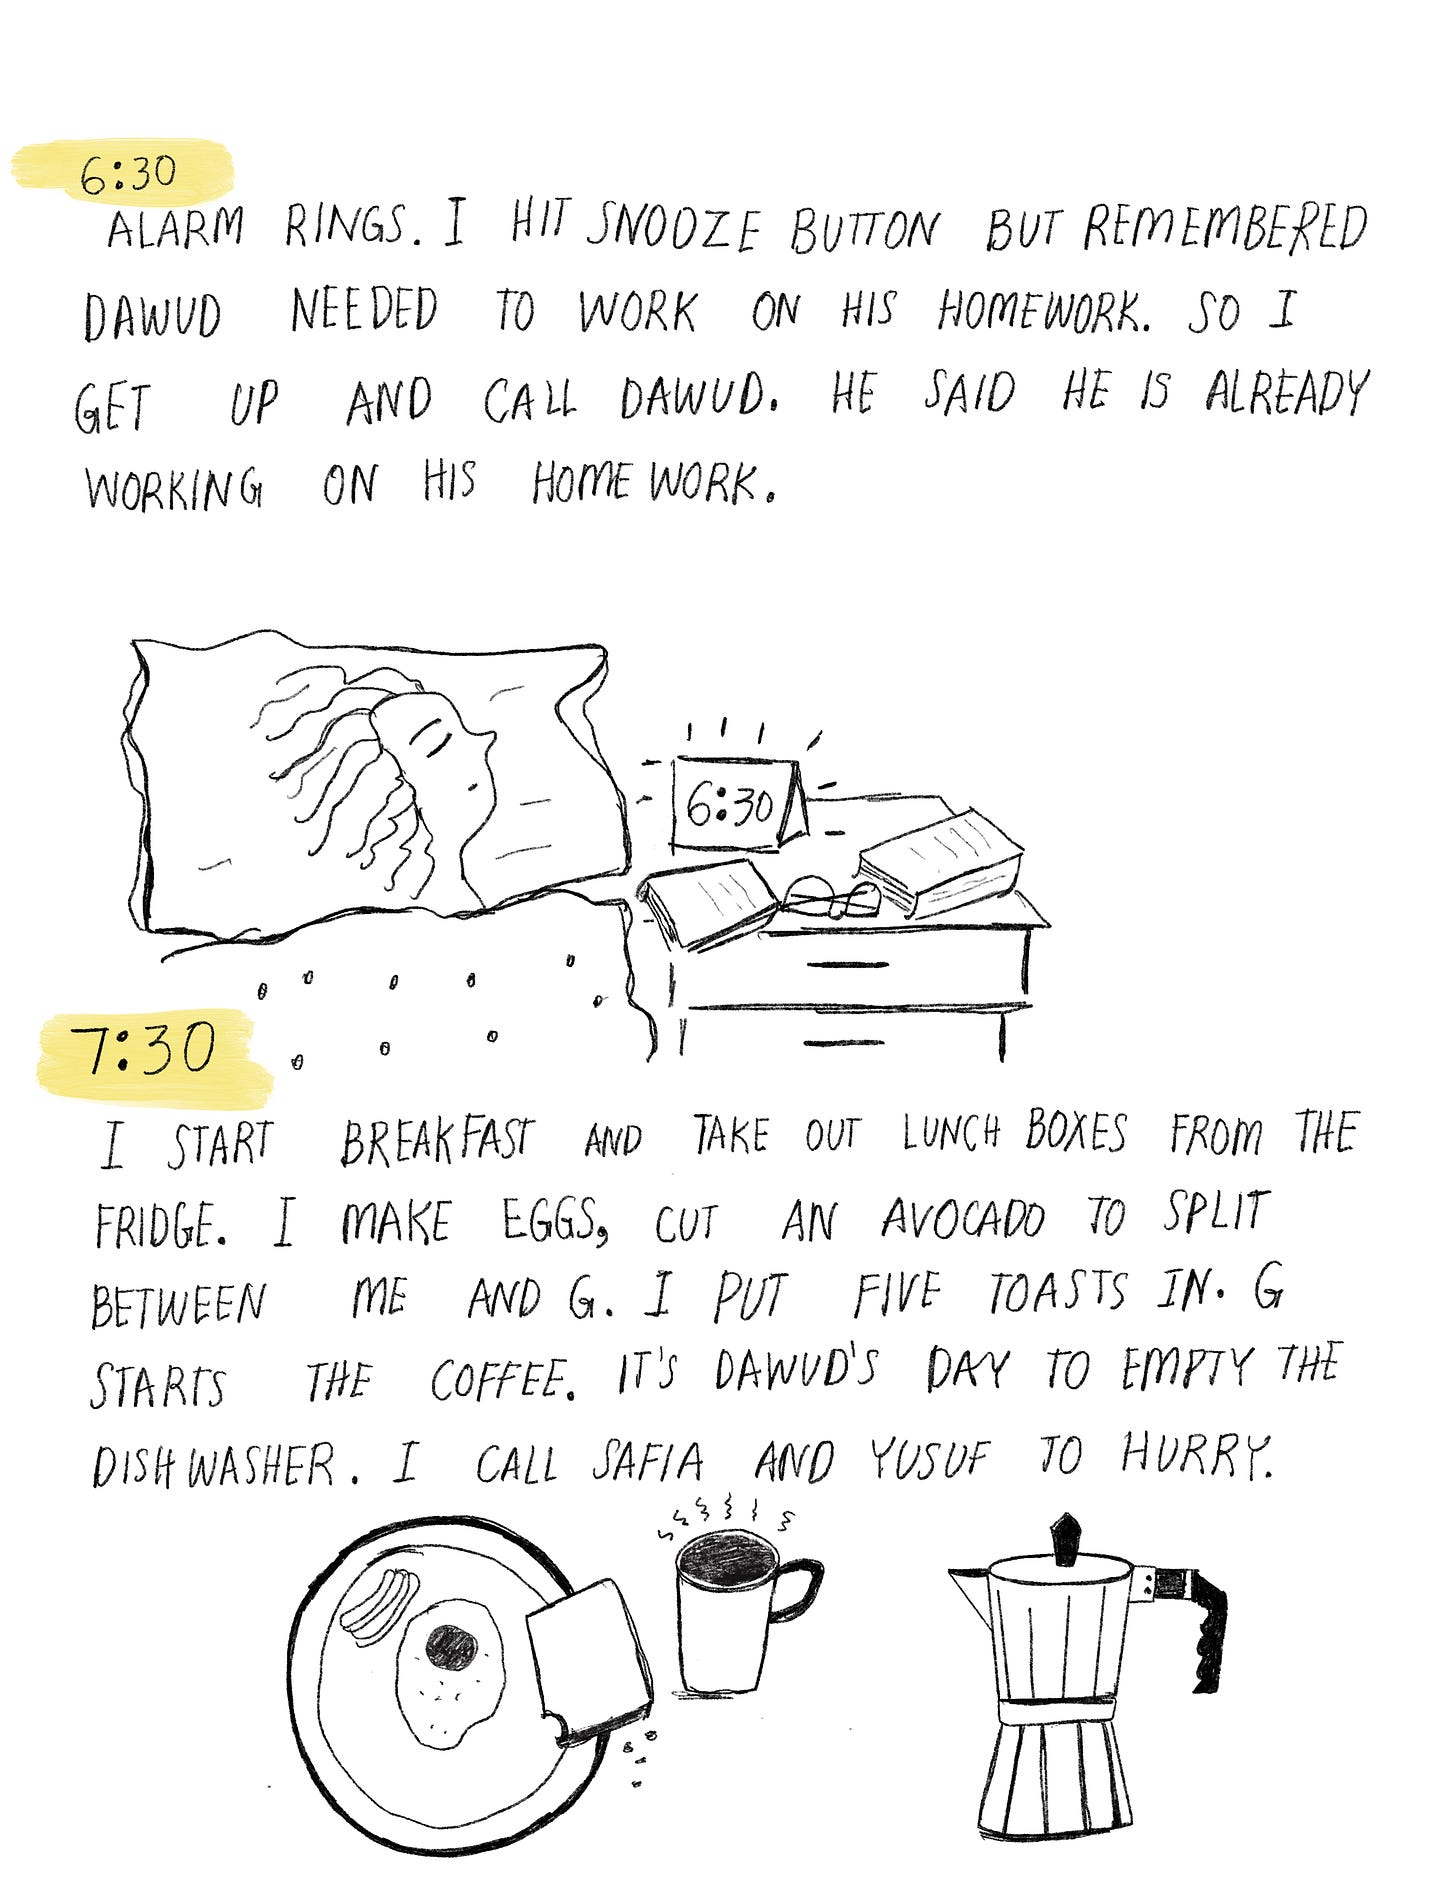 6:30
ALARM RINGS. I HIT SNOOZE BUTTON BUT REMEMBERED
DAWUD NEEDED TO WORK ON HIS HOMEWORK. SO I
GET UP AND CALL DAWUD. HE SAID HE IS ALREADY
WORKING ON HIS HOME WORK.
6:30
7:30
I START BREAKFAST AND TAKE OUT LUNCH BOXES FROM THE
FRIDGE. I MAKE EGGS, CUT AN AVOCADO TO SPLIT
BETWEEN ME AND G. I PUT FIVE TOASTS IN. G
STARTS THE COFFEE. IT'S DAWUD'S DAY TO EMPTY THE
DISHWASHER. I CALL SAFIA AND YUSUF TO HURRY.